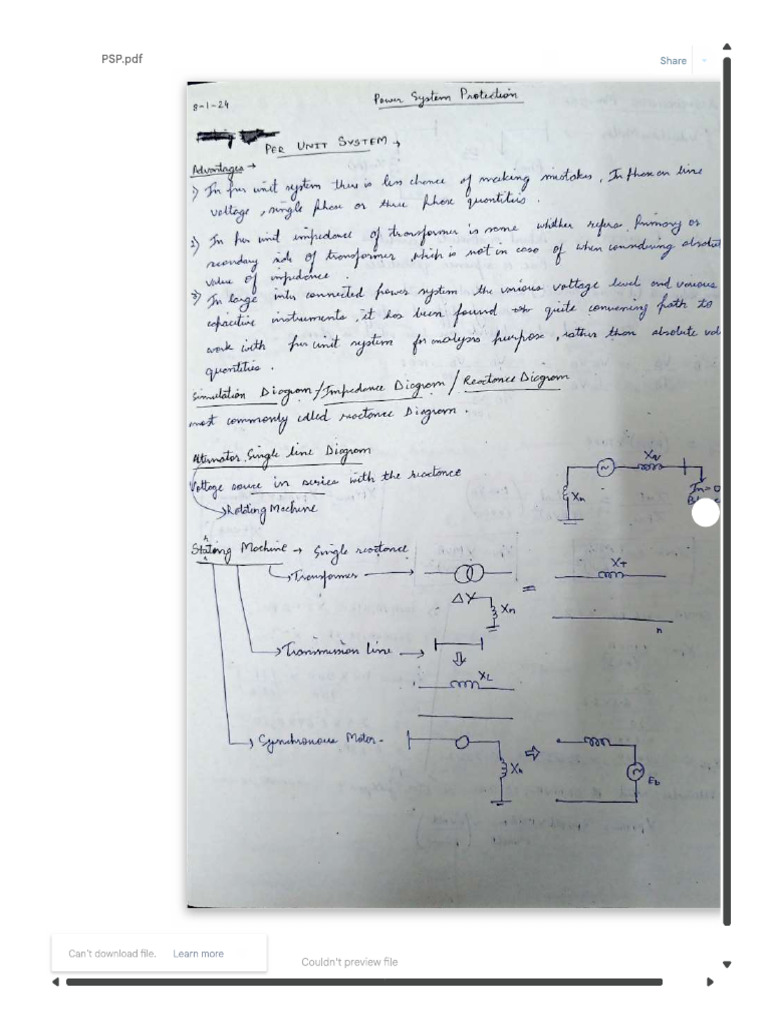 PSP.pdf
Share
8-1-24
Power System Protection
PER UNIT SYSTEM →
Advantages →
1) In per unit system there is less chance of making mistakes, In phase on line
voltage, single phase or three phase quantities.
2) In per unit impedance of transformer is same whether refers Primary or
secondary side of transformer which is not in case of when considering absolute
value of impedance.
3) In large inter connected power system the various voltage level and various
capacitive instruments, it has been found quite convening path to
work with per unit system for analysis purpose, rather than absolute
quantities.
Simulation Diagram / Impedance Diagram / Reactance Diagram
most commonly called reactance Diagram.
Alternator Single line Diagram
Voltage source in series with the reactance
→ Rotating Machine
Xn
In=0
Stating Machine → Single reactance
→ Transformer →
XT
=
ΔY
Xn
n
→ Transmission Line →
XL
→ Synchronous Motor -
Xn
Eb
Can't download file.
Learn more
Couldn't preview file